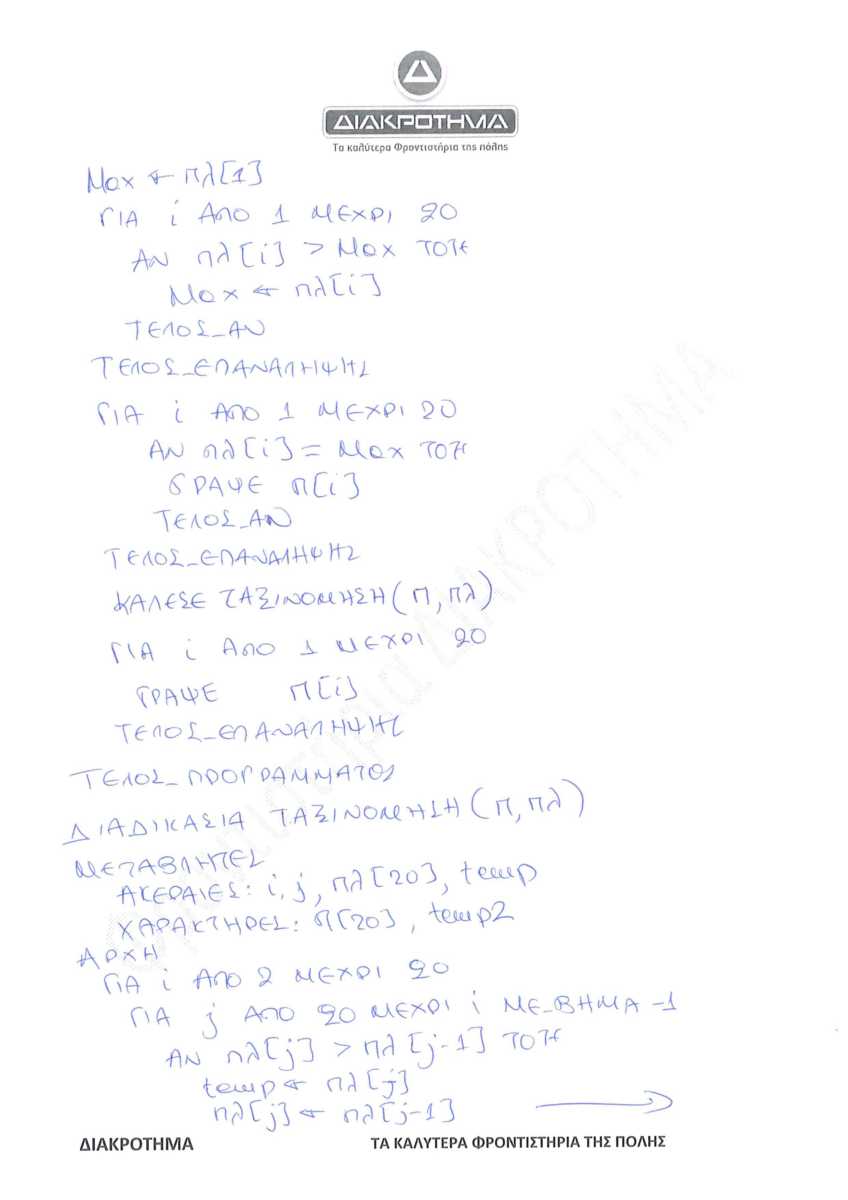 ΔΙΑΚΡΟΤΗΜΑ
Τα καλύτερα Φροντιστήρια της πόλης
Max ← πλ[1]
ΓΙΑ i ΑΠΟ 1 ΜΕΧΡΙ 20
ΑΝ πλ[i] > Max ΤΟΤΕ
Max ← πλ[i]
ΤΕΛΟΣ_ΑΝ
ΤΕΛΟΣ_ΕΠΑΝΑΛΗΨΗΣ
ΓΙΑ i ΑΠΟ 1 ΜΕΧΡΙ 20
ΑΝ πλ[i] = Max ΤΟΤΕ
ΓΡΑΨΕ Π[i]
ΤΕΛΟΣ_ΑΝ
ΤΕΛΟΣ_ΕΠΑΝΑΛΗΨΗΣ
ΚΑΛΕΣΕ ΤΑΞΙΝΟΜΗΣΗ(Π, πλ)
ΓΙΑ i ΑΠΟ 1 ΜΕΧΡΙ 20
ΓΡΑΨΕ Π[i]
ΤΕΛΟΣ_ΕΠΑΝΑΛΗΨΗΣ
ΤΕΛΟΣ_ΠΡΟΓΡΑΜΜΑΤΟΣ
ΔΙΑΔΙΚΑΣΙΑ ΤΑΞΙΝΟΜΗΣΗ(Π, πλ)
ΜΕΤΑΒΛΗΤΕΣ
ΑΚΕΡΑΙΕΣ: i, j, πλ[20], temp
ΧΑΡΑΚΤΗΡΕΣ: Π[20], temp2
ΑΡΧΗ
ΓΙΑ i ΑΠΟ 2 ΜΕΧΡΙ 20
ΓΙΑ j ΑΠΟ 20 ΜΕΧΡΙ i ΜΕ_ΒΗΜΑ -1
ΑΝ πλ[j] > πλ[j-1] ΤΟΤΕ
temp ← πλ[j]
πλ[j] ← πλ[j-1]
ΔΙΑΚΡΟΤΗΜΑ ΤΑ ΚΑΛΥΤΕΡΑ ΦΡΟΝΤΙΣΤΗΡΙΑ ΤΗΣ ΠΟΛΗΣ
Φροντιστήρια ΔΙΑΚΡΟΤΗΜΑ